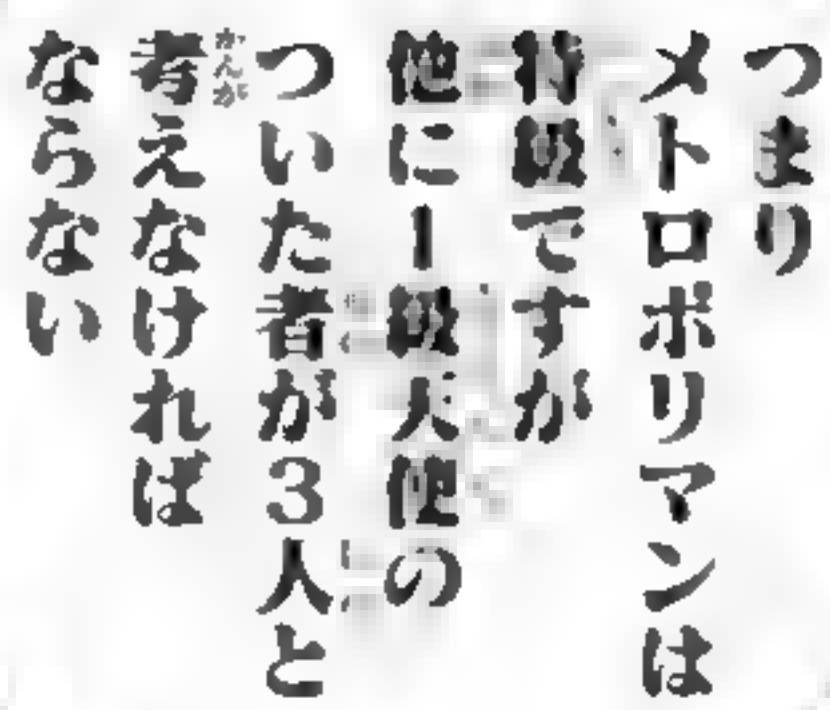 つまり
メトロポリマンは
特級ですが
他に1級天使の
ついた者が3人と
考えなければ
ならない